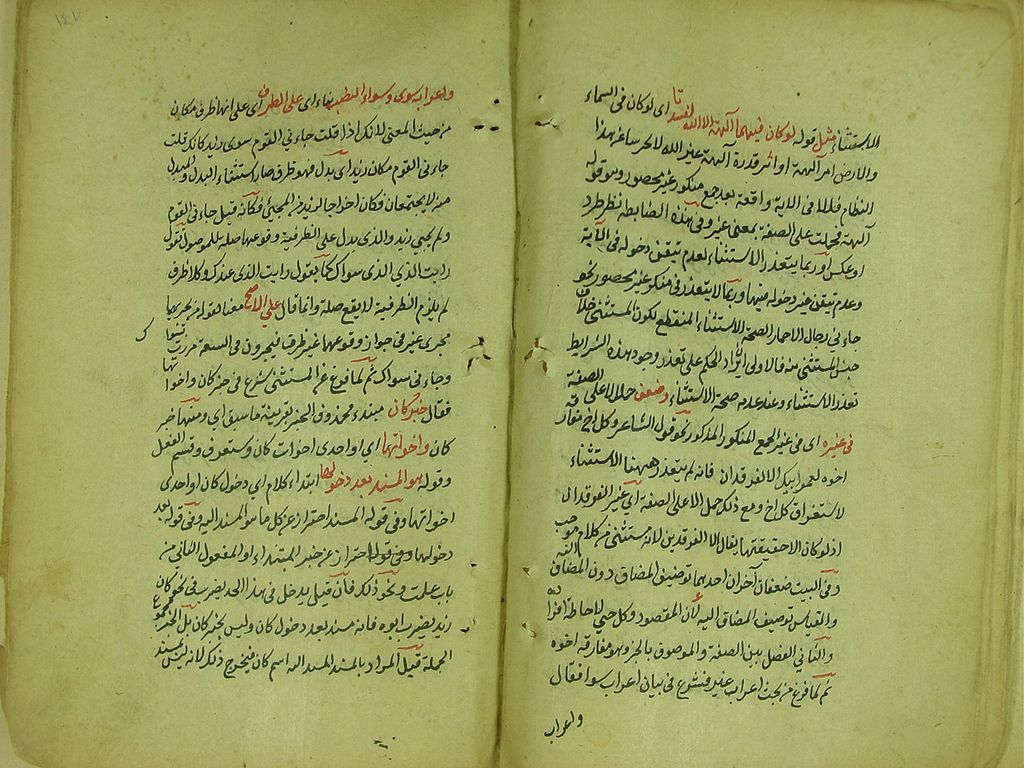 الاستثناء مثل قوله لو كان فيهما آلهة الا الله لفسدتا اى لو كان فى السماء
والارض آلهة غير الله
النظام فلا الا فى الاية واقعة بعد جمع منكور غير محصور وهو قوله
آلهة فحملت على الصفة بمعنى غير وفى هذه الضابطة نظر طرد
او عكس اذ ربما يتعذر الاستثناء لعدم تيقن دخوله فى الآية
وعدم تيقن عدم دخوله فيها وربما لا يتعذر فى منكر غير محصور نحو
جاءنى رجال الا حمار لصحة الاستثناء المنقطع لكون المستثنى خلاف
جنس المستثنى منه فالاولى ايراد الحكم على تعذر وجود هذه الشرايط
تعذر الاستثناء وعند عدمه صحة الاستثناء وضعف حمل الا على الصفة
فى غيره اى فى غير الجمع المنكور المذكور نحو قول الشاعر وكل اخ مفارقه
اخوه لعمر ابيك الا الفرقدان فانه لم يتعذر ههنا الاستثناء
لاستغراق كل اخ ومع ذلك حمل الا على الصفة اى غير الفرقدان
اذ لو كان الا حقيقتها يقال الا الفرقدين لانه مستثنى من كلام موجب
وفى البيت ضعفان آخران احدهما توصيف المضاف دون المضاف اليه
والقياس توصيف المضاف اليه لان المقصود وكل جئ لاحاطة افراده
والثانى الفصل بين الصفة والموصوف بالخبر وهو مفارقه اخوه
ثم لما فرغ من بحث اعراب غير فشرع فى بيان اعراب سوا فقال
واعراب
١٤٧
واعراب سوى وسواء النصب بناء اى على الظرف اى على انها ظرف مكان
من حيث المعنى لانك اذا قلت جاءنى القوم سوى زيد كانك قلت
جاءنى القوم مكان زيد اى بدل فهو ظرف صار كاستثناء البدل والمبدل
منه لا يجتمعان فكان اخراجا لزيد من المجيئ فكانه قيل جاءنى القوم
ولم يجيئ زيد والذى يدل على الظرفية وقوعها صلة للموصول تقول
رايت الذى سواك كما يقول رايت الذى عندك ولا ظرف
لم يلزم الظرفية لا يقع صلة وانما قال على الاصح
مجرى غير فى جواز وقوعها غير ظرف فيجرون فى السعة
وجاءنى سواك ثم لما فرغ من المستثنى شرع فى خبر كان واخواتها
فقال خبر كان مبتداء محذوف الخبر بقرينة ما سبق اى ومنها خبر
كان واخواتها اى او احدى اخوات كان وستعرف فى قسم الفعل
وقوله هو المسند بعد دخولها ابتداء كلام اى دخول كان او احدى
اخواتها وفى قوله المسند احتراز عن كل ما هو المسند اليه وفى قوله بعد
دخولها احتراز عن خبر المبتداء او المفعول الثانى من
باب علمت ونحو ذلك فان قيل يدخل فى هذا الحد يضرب فى نحو كان
زيد يضرب ابوه فانه مسند بعد دخول كان وليس بخبر كان بل الخبر مجموع
الجملة قيل المراد بالمسند المسند الى اسم كان فيخرج ذلك لانه ليس بمسند